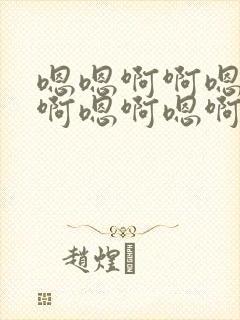 嗯嗯啊啊嗯
啊嗯啊嗯啊
趙煌